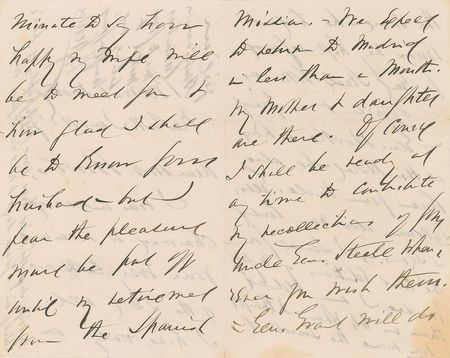 minute to say how
happy my wife will
be to meet you &
how glad I shall
be to know your
husband - but I
fear the pleasure
must be put off
until my retirement
from the Spanish
Mission. - We expect
to return to Madrid
in less than a month.
My Mother & daughter
are there. Of course
I shall be ready at
any time to contribute
my recollections of your
uncle Gen. Steele when-
ever you wish them.
Gen. Grant will do